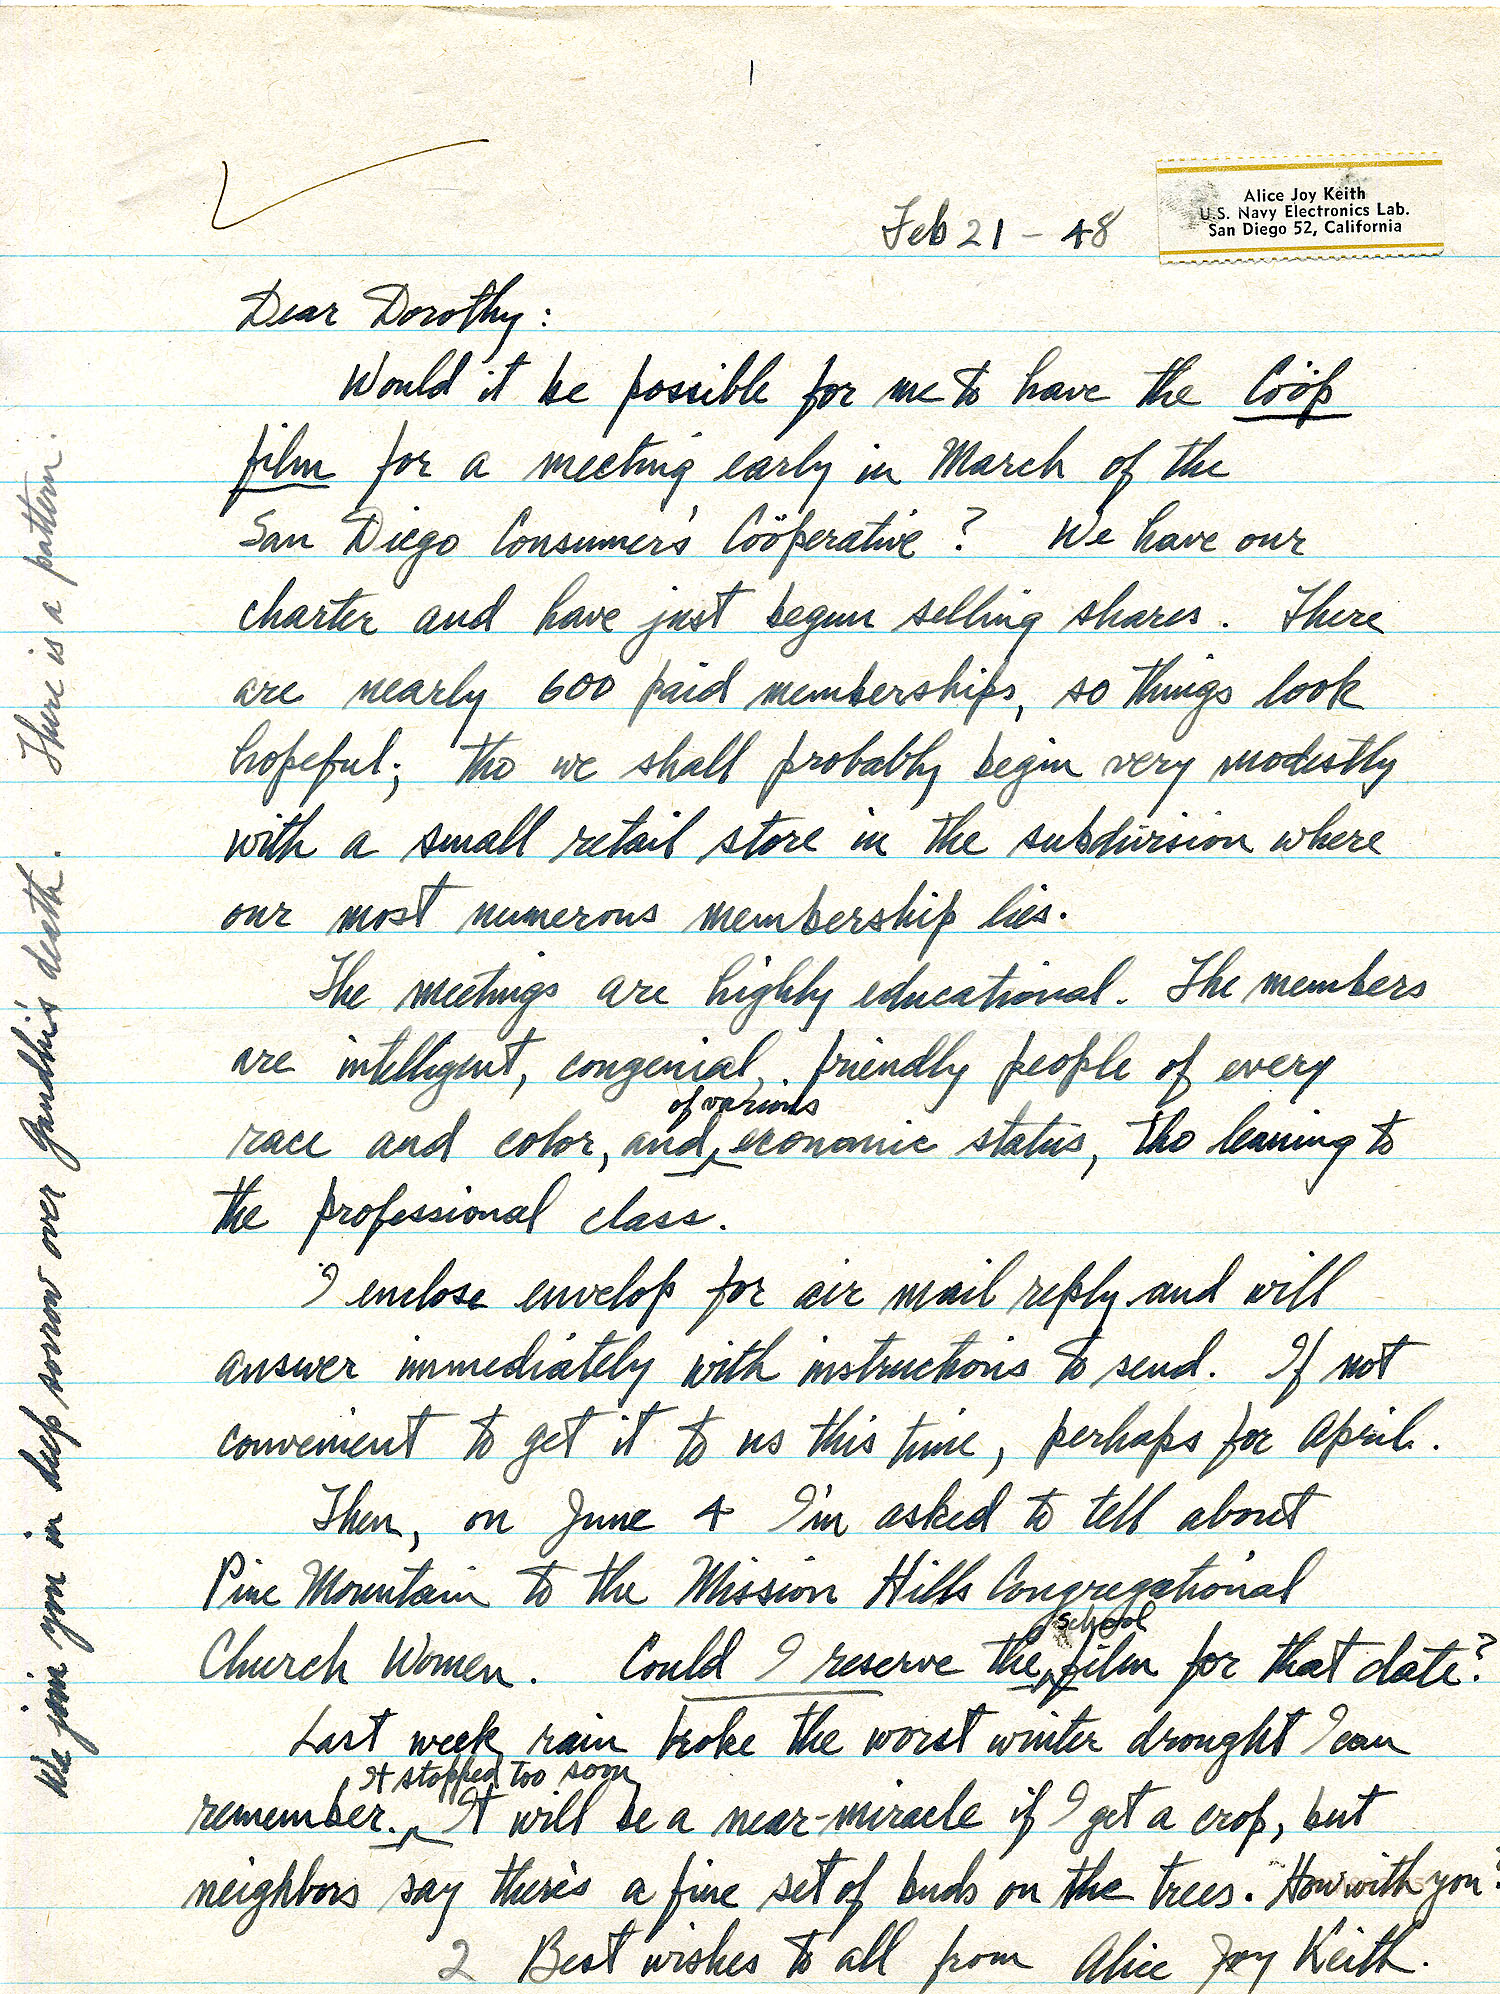 1
Alice Joy Keith
U.S. Navy Electronics Lab.
San Diego 52, California
Feb 21 - 48
Dear Dorothy:
Would it be possible for me to have the Coöp
film for a meeting early in March of the
San Diego Consumer's Coöperative? We have our
charter and have just begun selling shares. There
are nearly 600 paid memberships, so things look
hopeful; tho we shall probably begin very modestly
with a small retail store in the subdivision where
our most numerous membership lies.
The meetings are highly educational. The members
are intelligent, congenial, friendly people of every
of various
race and color, and economic status, tho leaning to
the professional class.
I enclose envelop for air mail reply and will
answer immediately with instructions to send. If not
convenient to get it to us this time, perhaps for April.
Then, on June 4 I'm asked to tell about
Pine Mountain to the Mission Hills Congregational
school
Church Women. Could I reserve the film for that date?
Last week rain broke the worst winter drought I can
It stopped too soon
remember. It will be a near-miracle if I get a crop, but
neighbors say there's a fine set of buds on the trees. How with you?
2 Best wishes to all from Alice Joy Keith.
We join you in deep sorrow over Gandhi's death. There is a pattern.